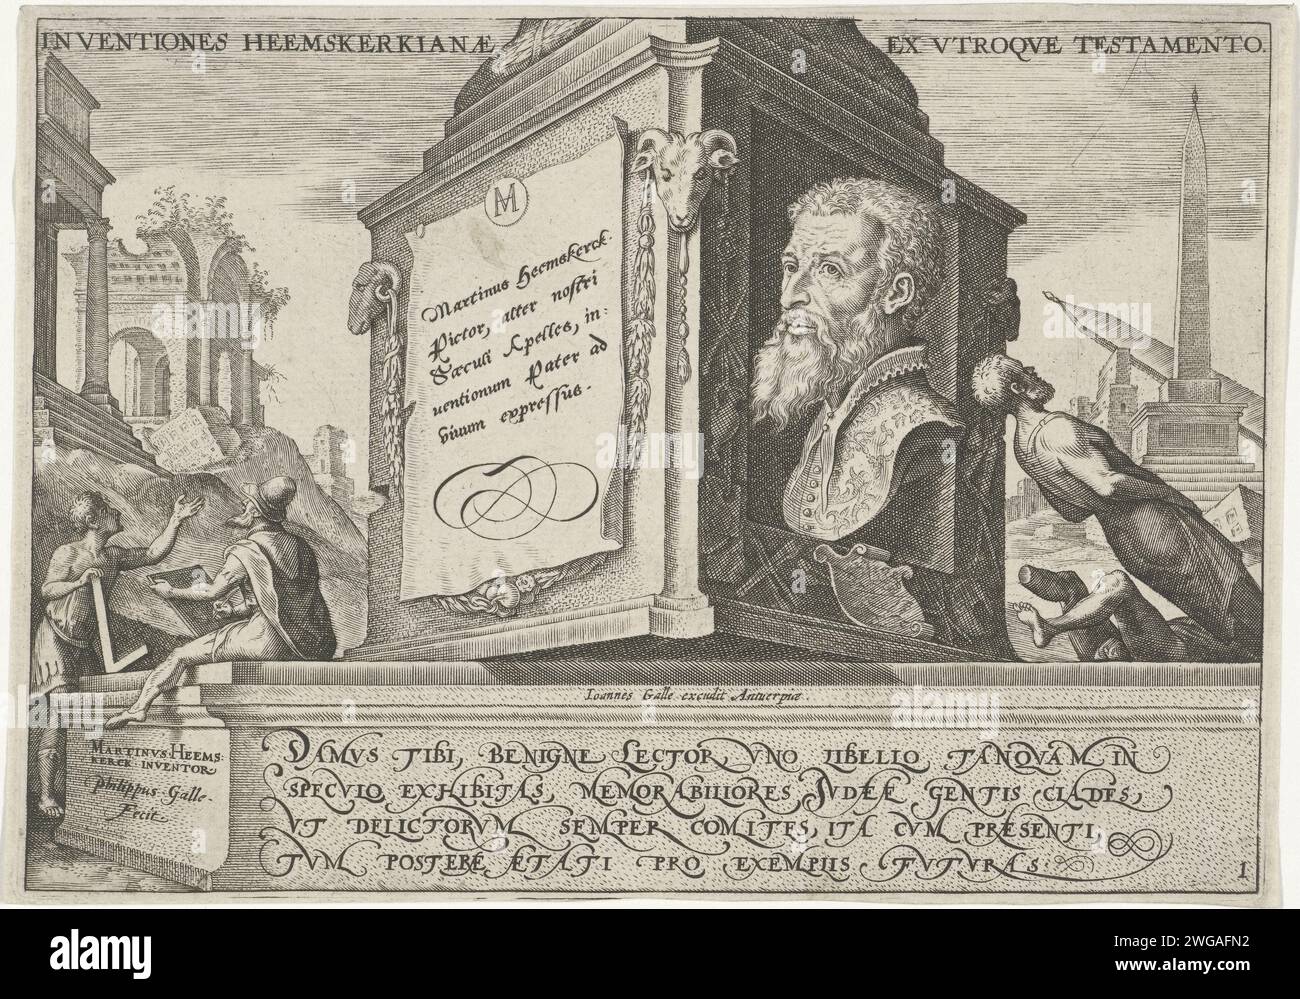 INVENTIONES HEEMSKERKIANÆ EX VTROQVE TESTAMENTO.
M
Martinus Heemskerck.
Pictor, alter nostri
Sæculi Apelles, in:
uentionum Pater ad
viuum expressus.
Ioannes Galle excudit Antuerpiæ
MARTINVS HEEMS:
KERCK INVENTOR
Philippus Galle.
Fecit
DAMVS TIBI, BENIGNE LECTOR, VNO LIBELLO TANQVAM IN
SPECVLO EXHIBITAS, MEMORABILIORES IVDEÆ GENTIS CLADES,
VT DELICTORVM SEMPER COMITES, ITA CVM PRÆSENTI
TVM POSTERÆ ÆTATI PRO EXEMPLIS FVTVRAS.
1
alamy
a
alamy
Image ID: 2WGAFN2
www.alamy.com